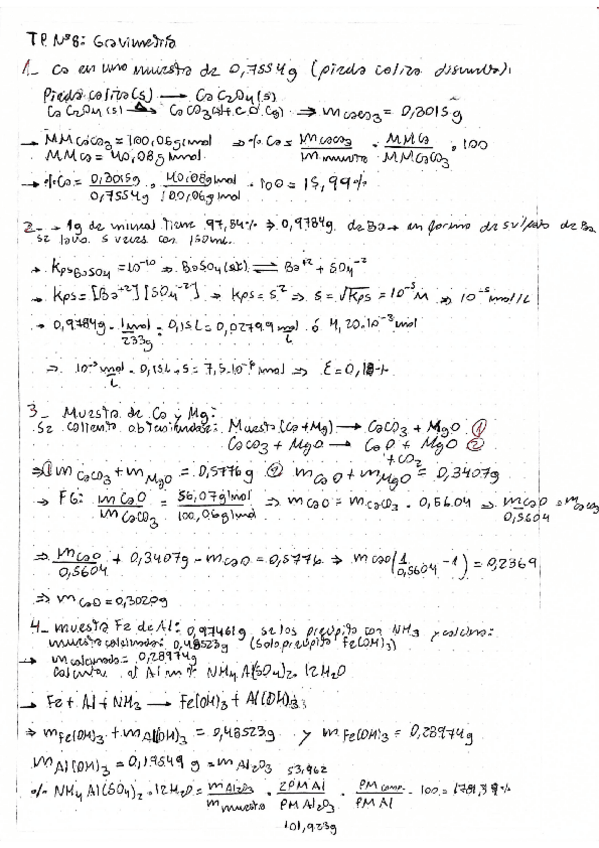 T.P. N°8: Gravimetría
1_ Ca en una muestra de 0,7554g (piedra caliza disuelta):
Piedra caliza(s) → CaC2O4(s)
CaC2O4(s) → CaCO3(s) + CO(g) ⇒ mCaCO3 = 0,3015g
→ MMCaCO3 = 100,06g/mol ⇒ %Ca = mCaCO3/m muestra · MMCa/MMCaCO3 · 100
MMCa = 40,08g/mol
→ %Ca = 0,3015g/0,7554g · 40,08g/mol/100,06g/mol · 100 = 15,99%
2_ → 1g de mineral tiene 97,84% ⇒ 0,9784g de Ba → en forma de sulfato de Ba
se lava 5 veces con 150mL.
→ KpsBaSO4 = 10^-10 ⇒ BaSO4(s) ⇌ Ba+2 + SO4-2
→ Kps = [Ba+2][SO4-2] ⇒ Kps = s^2 ⇒ s = √Kps = 10^-5 M ⇒ 10^-5 mol/L
→ 0,9784g · 1mol/233g · 0,15L = 0,02799 mol/L ó 4,20·10^-3 mol
⇒ 10^-5 mol/L · 0,15L · 5 = 7,5·10^-6 mol ⇒ E = 0,18%
3_ Muestra de Ca y Mg:
Se calienta obteniéndose: Muestra (Ca+Mg) → CaCO3 + MgO ①
CaCO3 + MgO → CaO + MgO ②
+CO2
⇒ ① mCaCO3 + mMgO = 0,5776g ② mCaO + mMgO = 0,3407g
→ FG: mCaO/mCaCO3 = 56,07g/mol/100,06g/mol ⇒ mCaO = mCaCO3 · 0,5604 ⇒ mCaO/0,5604 = mCaCO3
⇒ mCaO/0,5604 + 0,3407g - mCaO = 0,5776 ⇒ mCaO(1/0,5604 - 1) = 0,2369
⇒ mCaO = 0,3020g
4_ muestra Fe de Al: 0,97461g se los precipita con NH3 y calcina:
muestra calcinada: 0,48523g (Solo precipita Fe(OH)3)
→ m calcinada = 0,28974g
Calcular el Al en % NH4Al(SO4)2·12H2O
→ Fe + Al + NH3 → Fe(OH)3 + Al(OH)3
⇒ mFe(OH)3 + mAl(OH)3 = 0,48523g y mFe(OH)3 = 0,28974g
mAl(OH)3 = 0,19549g = mAl2O3 53,962
% NH4Al(SO4)2·12H2O = mAl2O3/m muestra · 2PMAl/PMAl2O3 · PMcomp./PMAl · 100 = 178,39%
101,923g